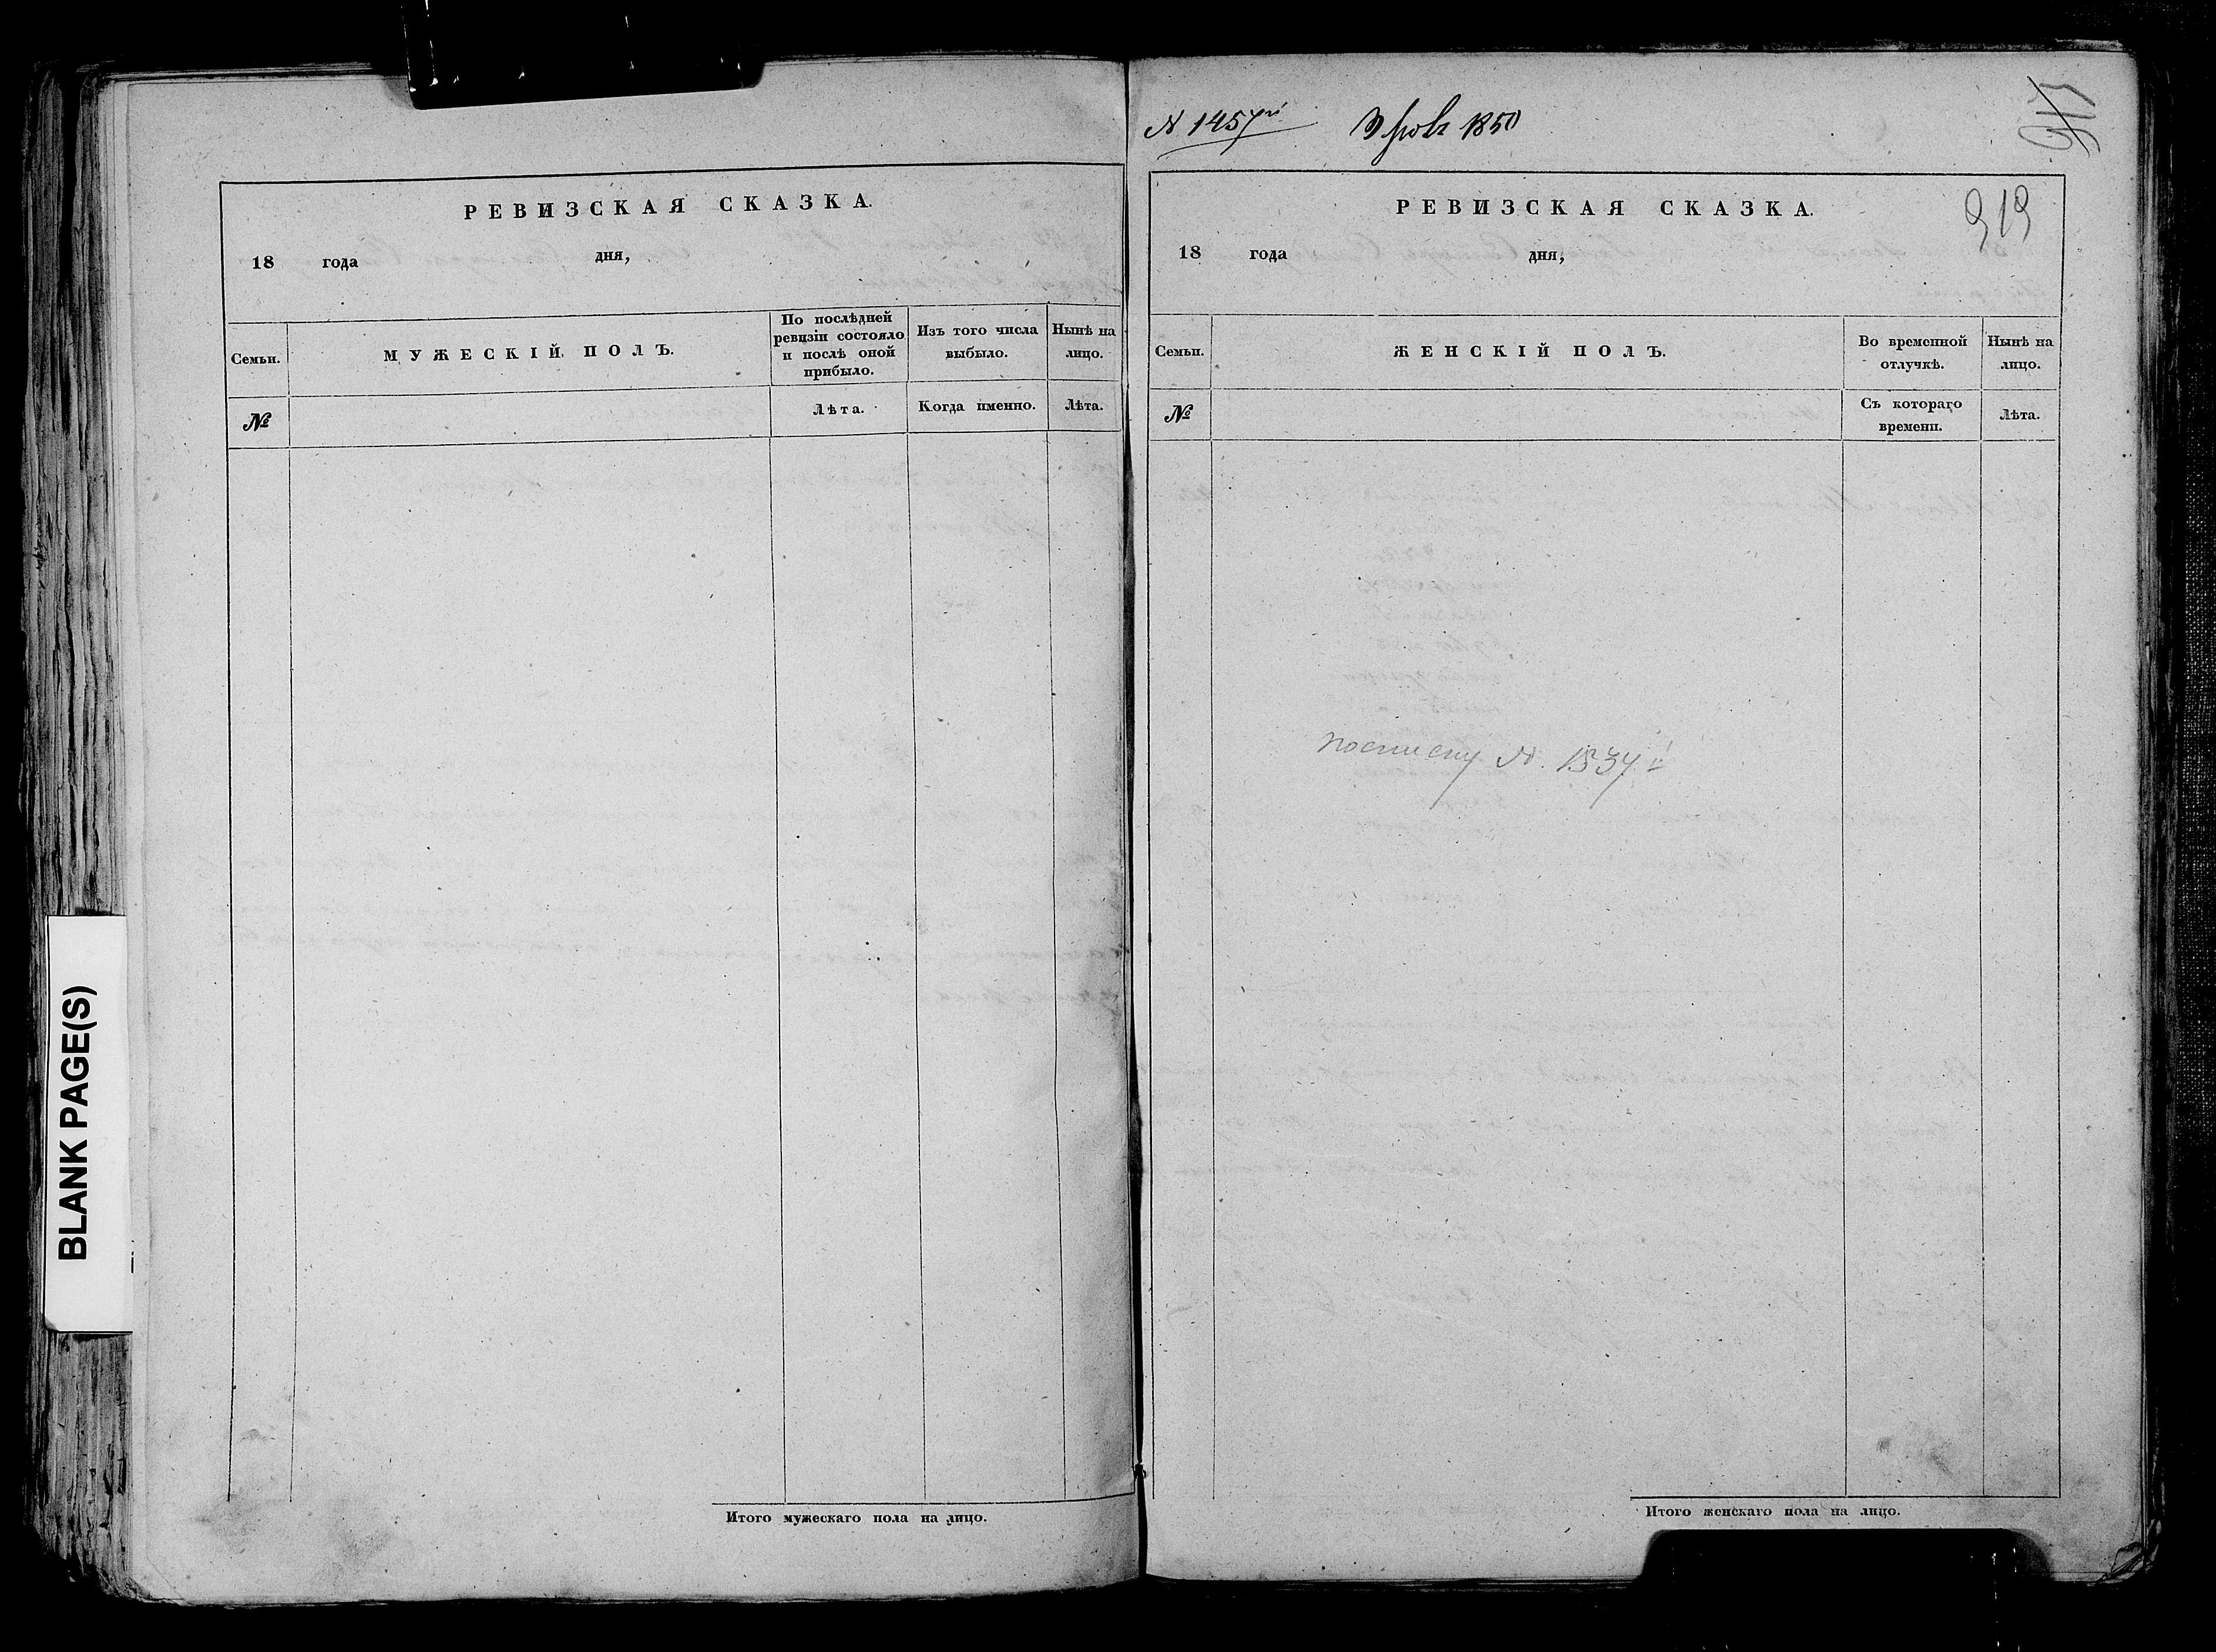 РЕВИЗСКАЯ СКАЗКА.
18 года дня,
Семьи.
МУЖЕСКІЙ ПОЛЪ.
По послѣдней
ревизіи состояло
и послѣ оной
прибыло.
Изъ того числа
выбыло.
Нынѣ на
лицо.
№
Лѣта.
Когда именно.
Лѣта.
Итого мужескаго пола на лицо.
BLANK PAGE(S)
№ 1457й
1850
РЕВИЗСКАЯ СКАЗКА.
919
18 года дня,
Семьи.
ЖЕНСКІЙ ПОЛЪ.
Во временной
отлучкѣ.
Нынѣ на
лицо.
№
Съ котораго
времени.
Лѣта.
№. 1537й
Итого женскаго пола на лицо.